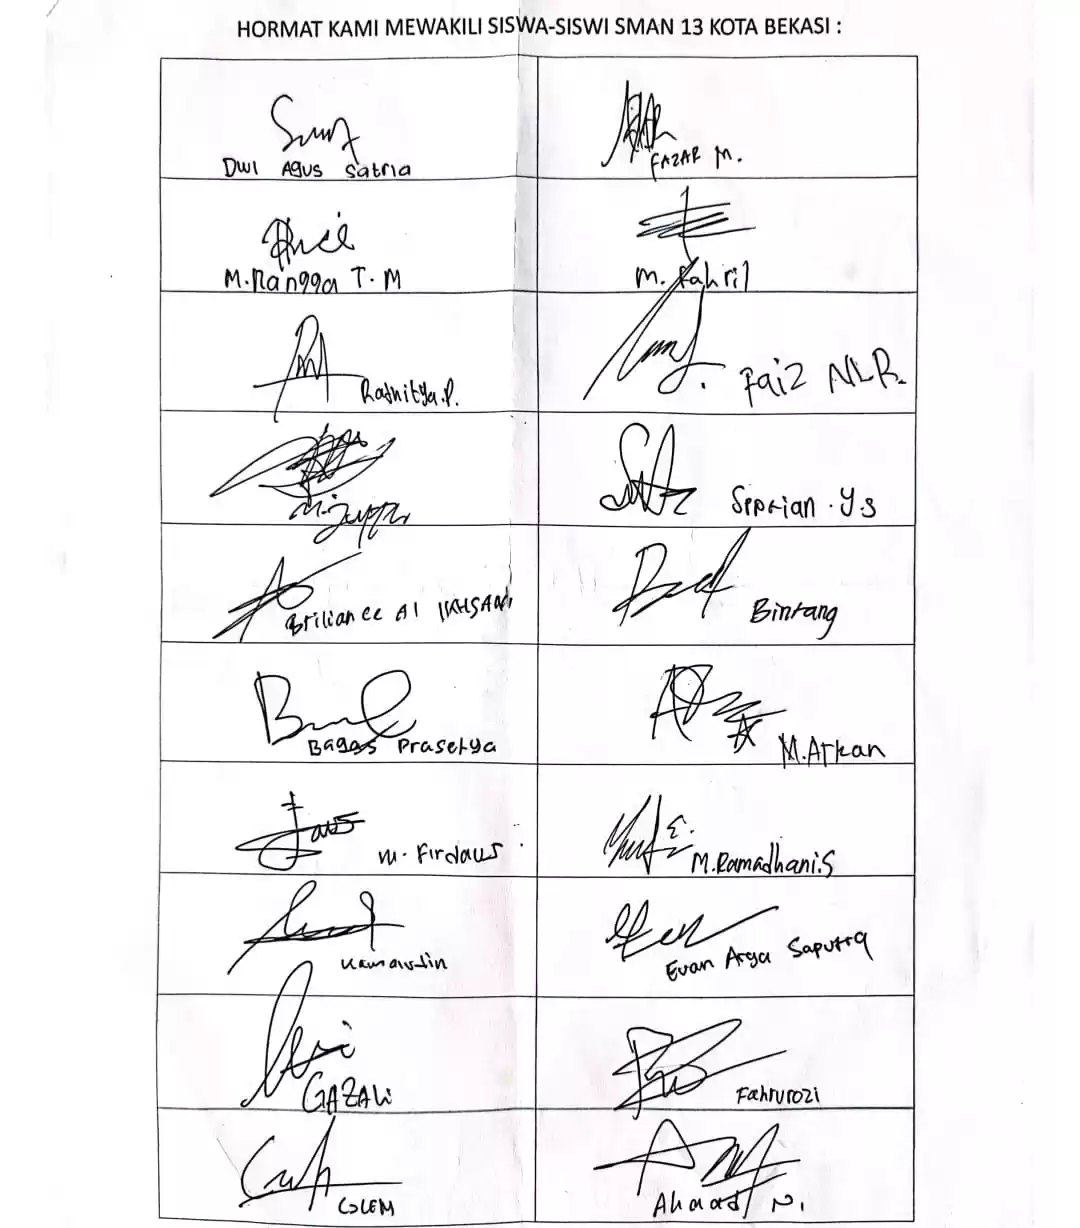 HORMAT KAMI MEWAKILI SISWA-SISWI SMAN 13 KOTA BEKASI :
Dwi Agus Satria
FAZAR M.
M.Rangga T.M
M. Fahril
Radhitya.P.
Faiz NLR.
Seprian .Y.S
Briliance Al IKHSAN
Bintang
Bagas Prasetya
M.Arkan
M. Firdaus
M.Ramadhani.S
Kamaludin
Evan Arga Saputra
GAZALi
Fahrurozi
GLEM
Ahmad N.